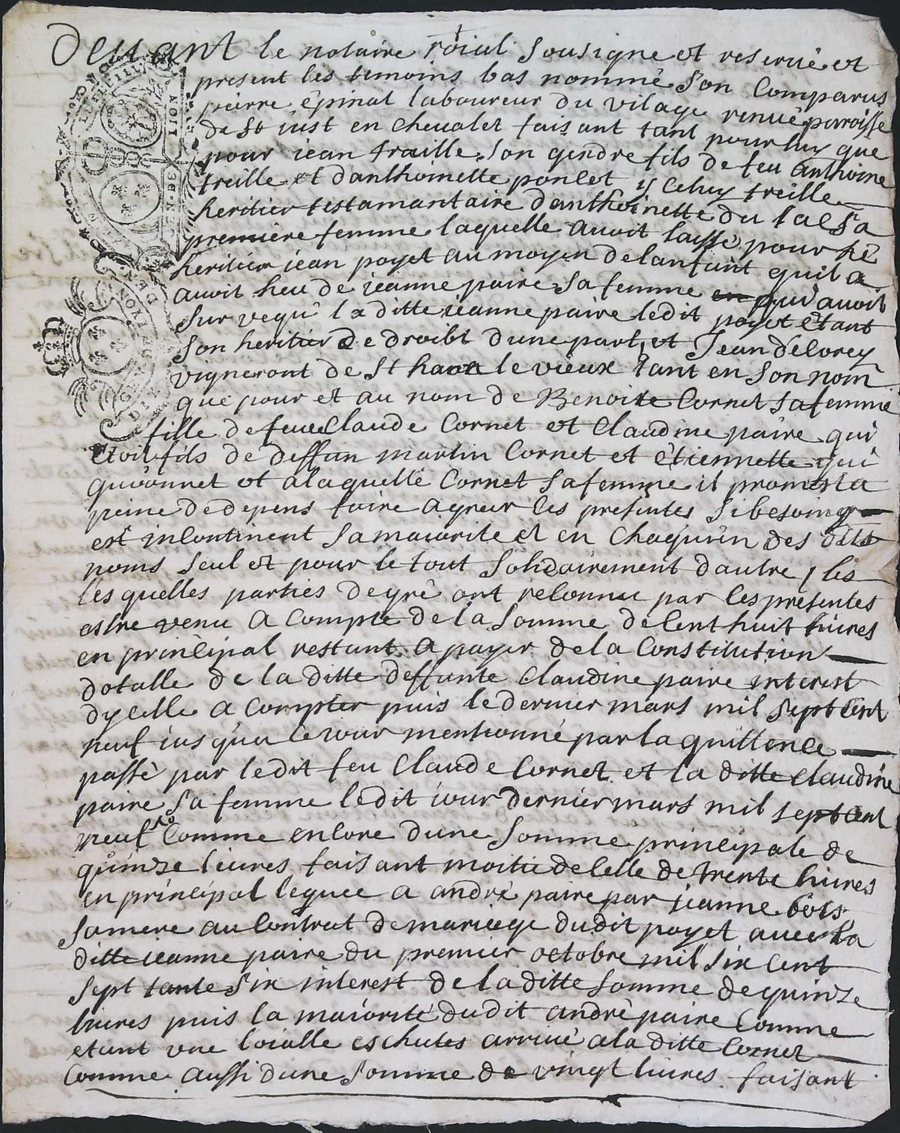 Devant le notaire roial sousigne et reservé et
present les temoins bas nommé son comparus
pierre épinat laboureur du vilage renué parroisse
de St iust en chevalet faisant tant pour luy que
pour jean traille son gindre fils de feu anthoine
treille et danthoinette poncet y celuy treille
heritier testamantaire danthoinette du la sa
première femme laquelle avoit laissé pour hé
heritier jean poyet au moyen de lanfant quil a
avoit heu de jeanne paire sa femme qui avoit
survequ la ditte jeanne paire ledit poyet étant
son heritier de droibt dune part, et Jean delorey
vigneront de St haon le vieux tant en son nom
que pour et au nom de Benoite Cornet sa femme
fille de feu Claude Cornet et Claudine paire qui
étoit fils de deffan martin Cornet et etiennette qui
quivonnet et a laquelle Cornet sa femme il promest a
peine de depens faire agreer les présentes si besoing
est incontinent sa maiorite et en chaquun des dits
noms seul et pour le tout solidairement dautre, les
les quelles parties de gré ont reconnu par les présentes
estre venu a compte de la somme de cent huit livres
en principal restant a payer de la Constitution
dotalle de la ditte deffante Claudine paire interest
dycelle a compter puis le dernier mars mil sept cent
neuf iusqua le iour mentionné par la quittence
passé par ledit feu Claude Cornet et la ditte Claudine
paire sa femme ledit iour dernier mars mil sept cent
neuf Comme encore dune somme principale de
quinze livres faisant moitié de celle de trente livres
en principal leguee a andré paire par jeanne bois
sa mere au contrat de mariege dudit poyet avec la
ditte jeanne paire du premier octobre mil six cent
sept tante six interest de la ditte somme de quinze
livres puis la maiorité dudit andré paire Comme
etant une loialle eschutes arrivé a la ditte Cornet
Comme aussi dune somme de vingt livres faisant